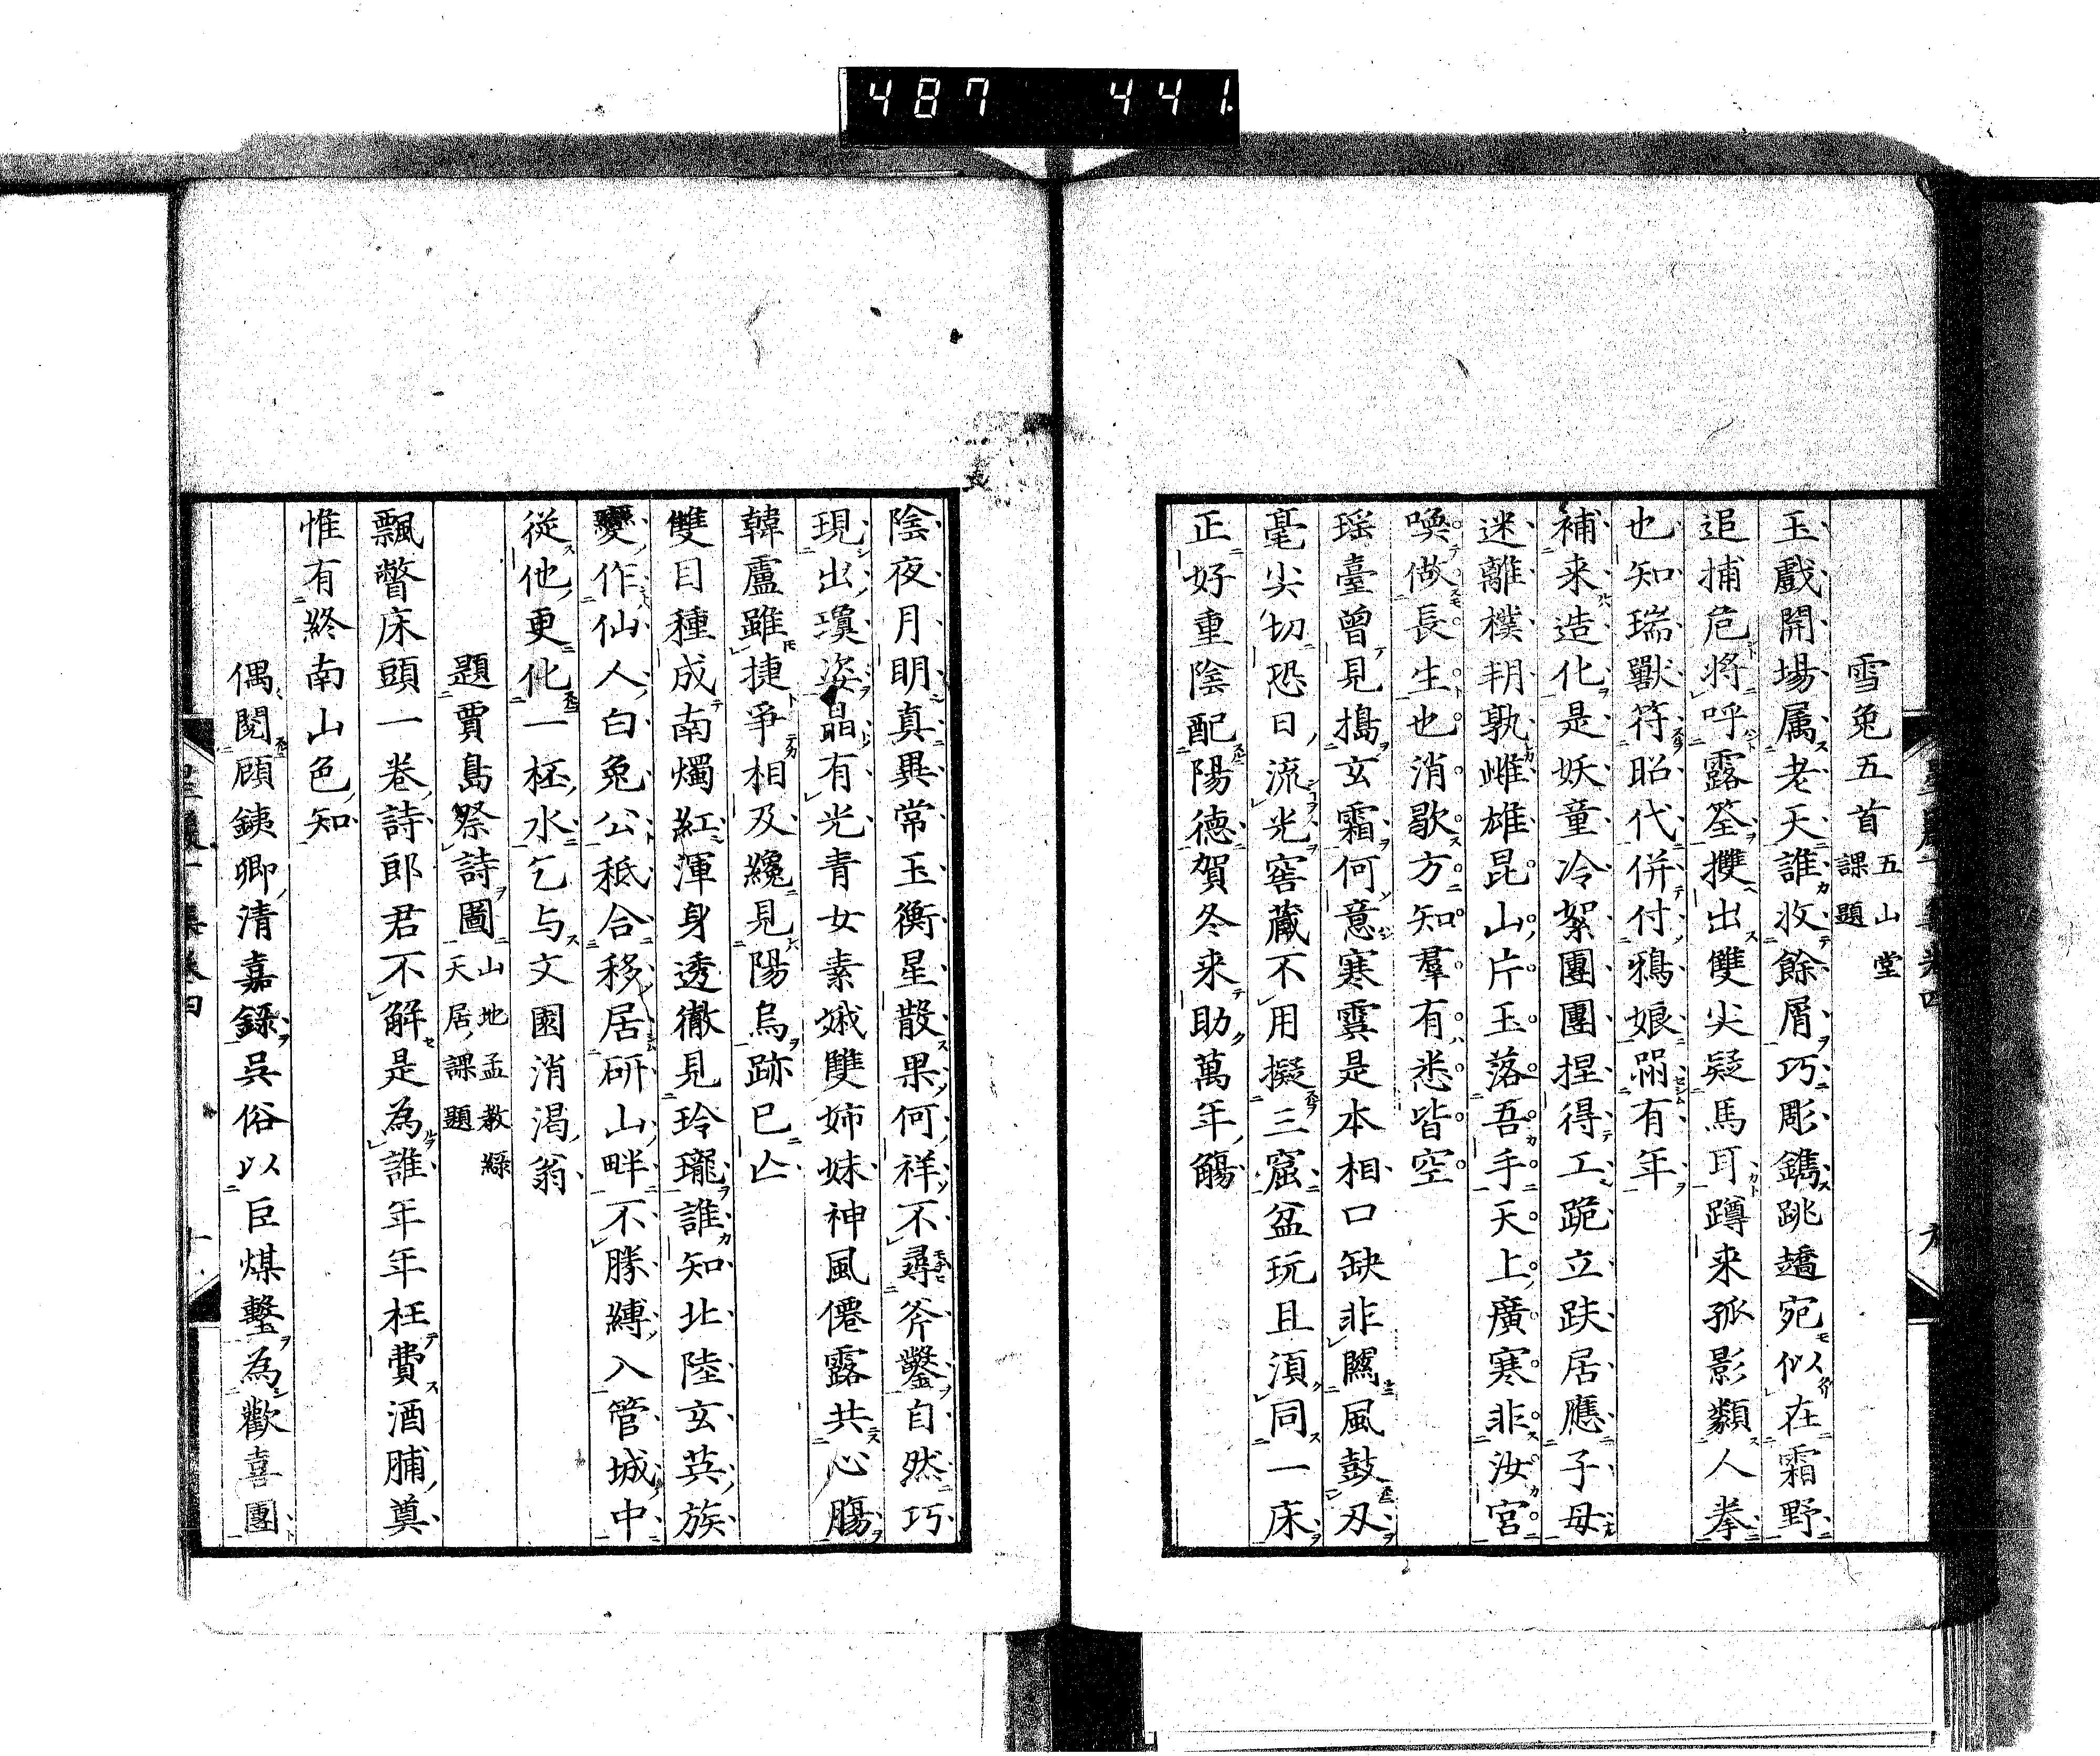 487 441
雪兔五首 五山堂課題
玉戲開場属老天誰收餘屑巧彫鐫跳趫宛似在霜野
追捕危將呼露筌攖出雙尖疑馬耳蹲来孤影類人拳
也知瑞獸符昭代併付鴉娘喎有年
補来造化是妖童冷絮團團捏得工跪立趺居應子母
迷離樸朔孰雌雄昆山片玉落吾手天上廣寒非汝宮
喚做長生也消歇方知羣有悉皆空
瑶臺曾見搗玄霜何意寒雲是本相口缺非關風鼓刃
毫尖切恐日流光窖藏不用擬三窟盆玩且須同一床
正好重陰配陽德賀冬来助萬年觴
陰夜月明真異常玉衡星散果何祥不尋斧鑿自然巧
現出瓊姿晶有光青女素娥雙姉妹神風僊露共心腸
韓盧雖捷爭相及纔見陽烏跡已亡
雙目種成南燭紅渾身透徹見玲瓏誰知北陸玄英族
變作仙人白兔公秪合移居研山畔不勝縛入管城中
従他更化一杯水乞与文園消渇翁
題賈島祭詩圖 山地孟教綠天居課題
飄瞥床頭一巻詩郎君不解是為誰年年枉費酒脯奠
惟有終南山色知
偶閲顧鉄卿清嘉録呉俗以巨煤墼為歡喜團